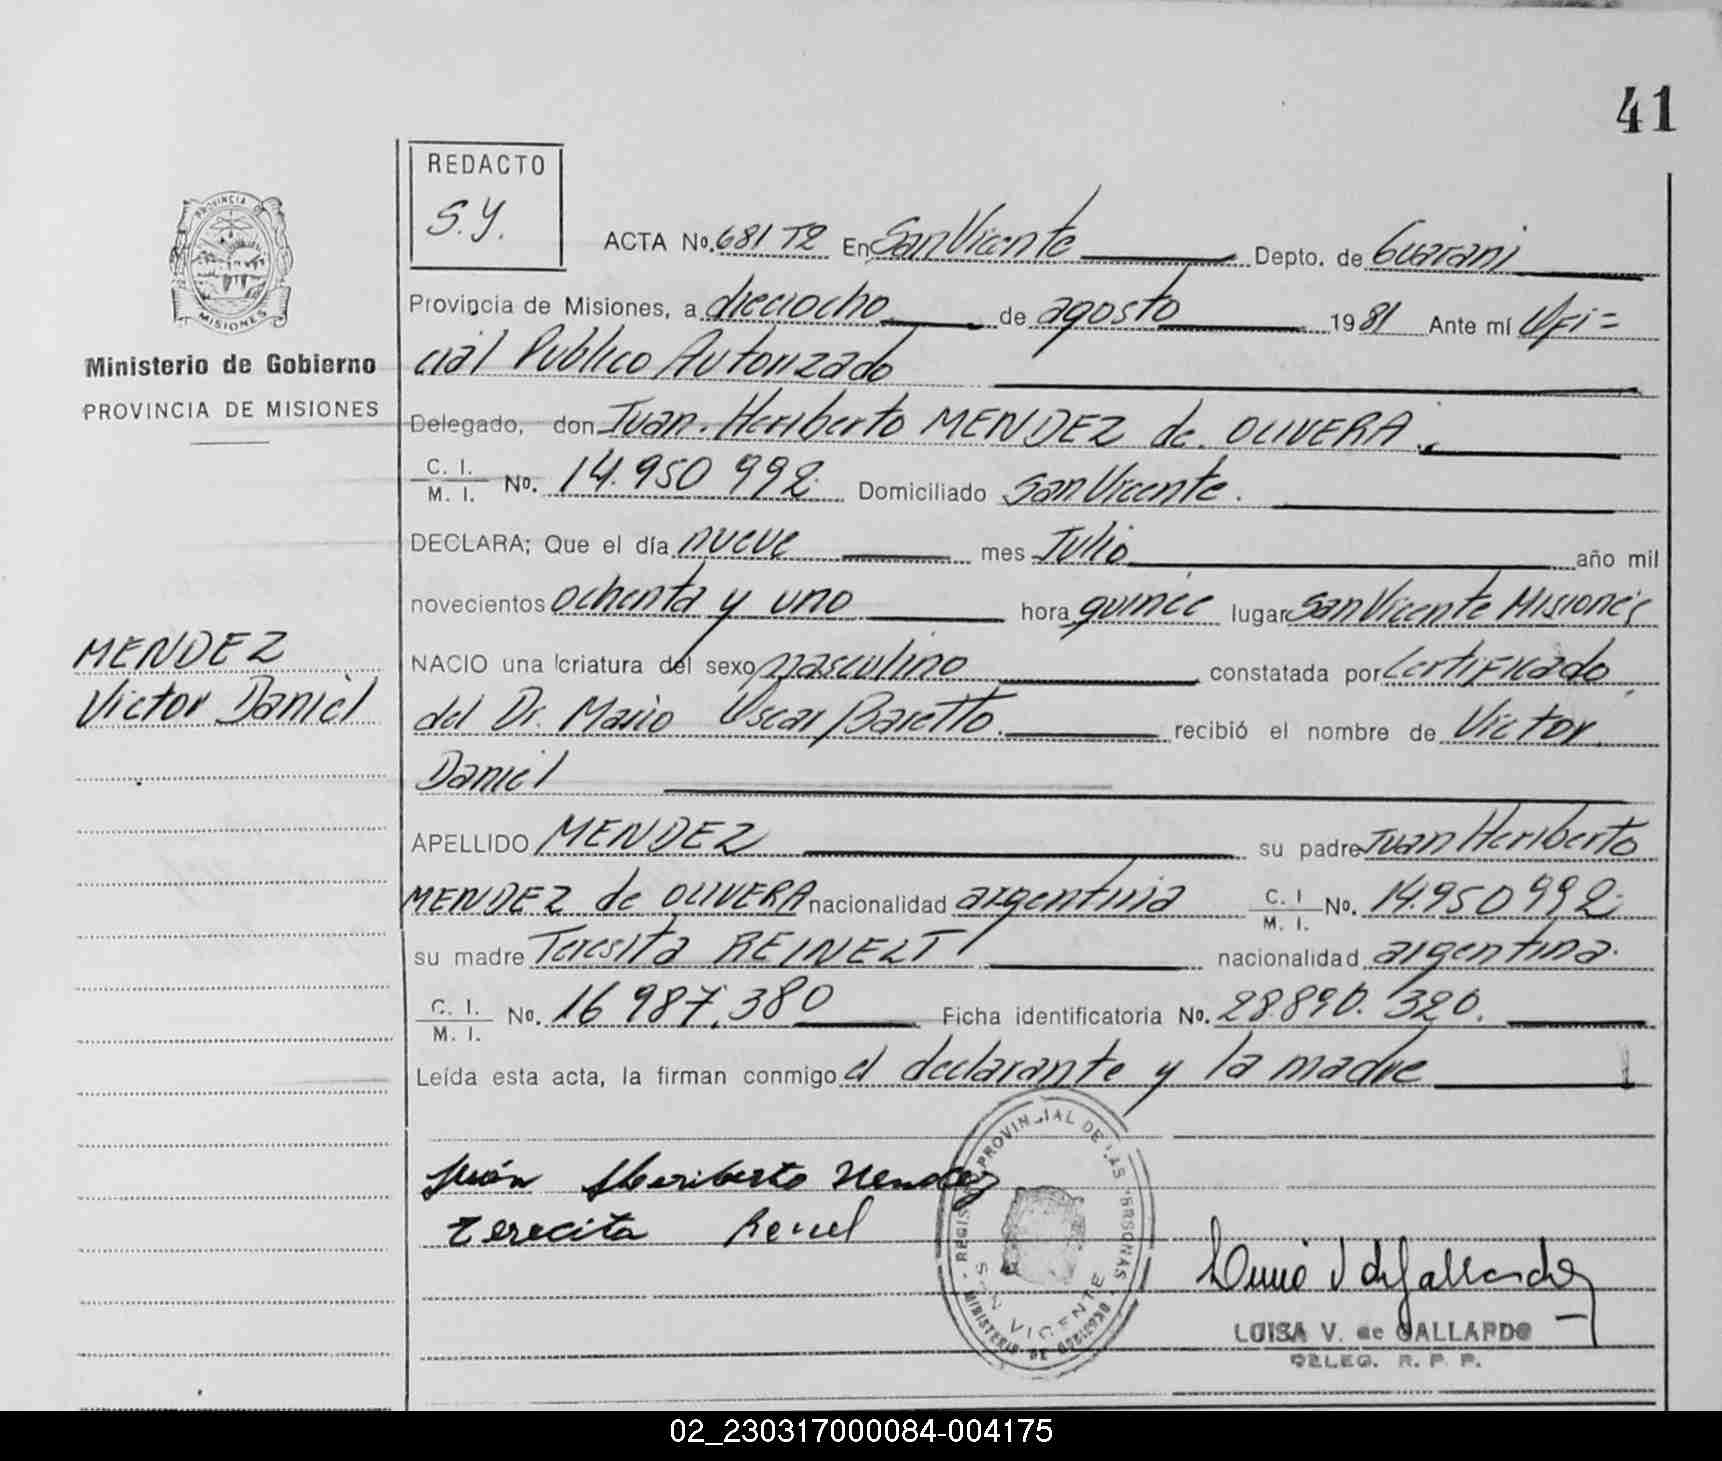 41
REDACTO
S.Y.
PROVINCIA DE
MISIONES
Ministerio de Gobierno
PROVINCIA DE MISIONES
MENDEZ
Victor Daniel
ACTA No. 681 T2 En San Vicente Depto. de Guarani
Provincia de Misiones, a dieciocho de agosto 1981 Ante mí Ofi=
cial Publico Autorizado
Delegado, don Juan Heriberto MENDEZ de OLIVERA
C. I.
M. I. No. 14.950 992 Domiciliado San Vicente.
DECLARA; Que el día nueve mes Julio año mil
novecientos ochenta y uno hora quince lugar San Vicente Misiones
NACIO una criatura del sexo masculino constatada por Certificado
del Dr. Mario Oscar Baretto. recibió el nombre de Victor
Daniel
APELLIDO MENDEZ su padre Juan Heriberto
MENDEZ de OLIVERA nacionalidad argentina C. I
M. I. No. 14.950 992
su madre Teresita REINELT nacionalidad argentina.
C. I.
M. I. No. 16 987.380 Ficha identificatoria No. 28.890. 320.
Leída esta acta, la firman conmigo el declarante y la madre
Juán Heriberto Mendez
terecita
REGISTRO PROVINCIAL DE LAS PERSONAS
SAN VICENTE
MINISTERIO DE GOBIERNO
LUISA V. de GALLARDO
DELEG. R. P. P.
02_230317000084-004175